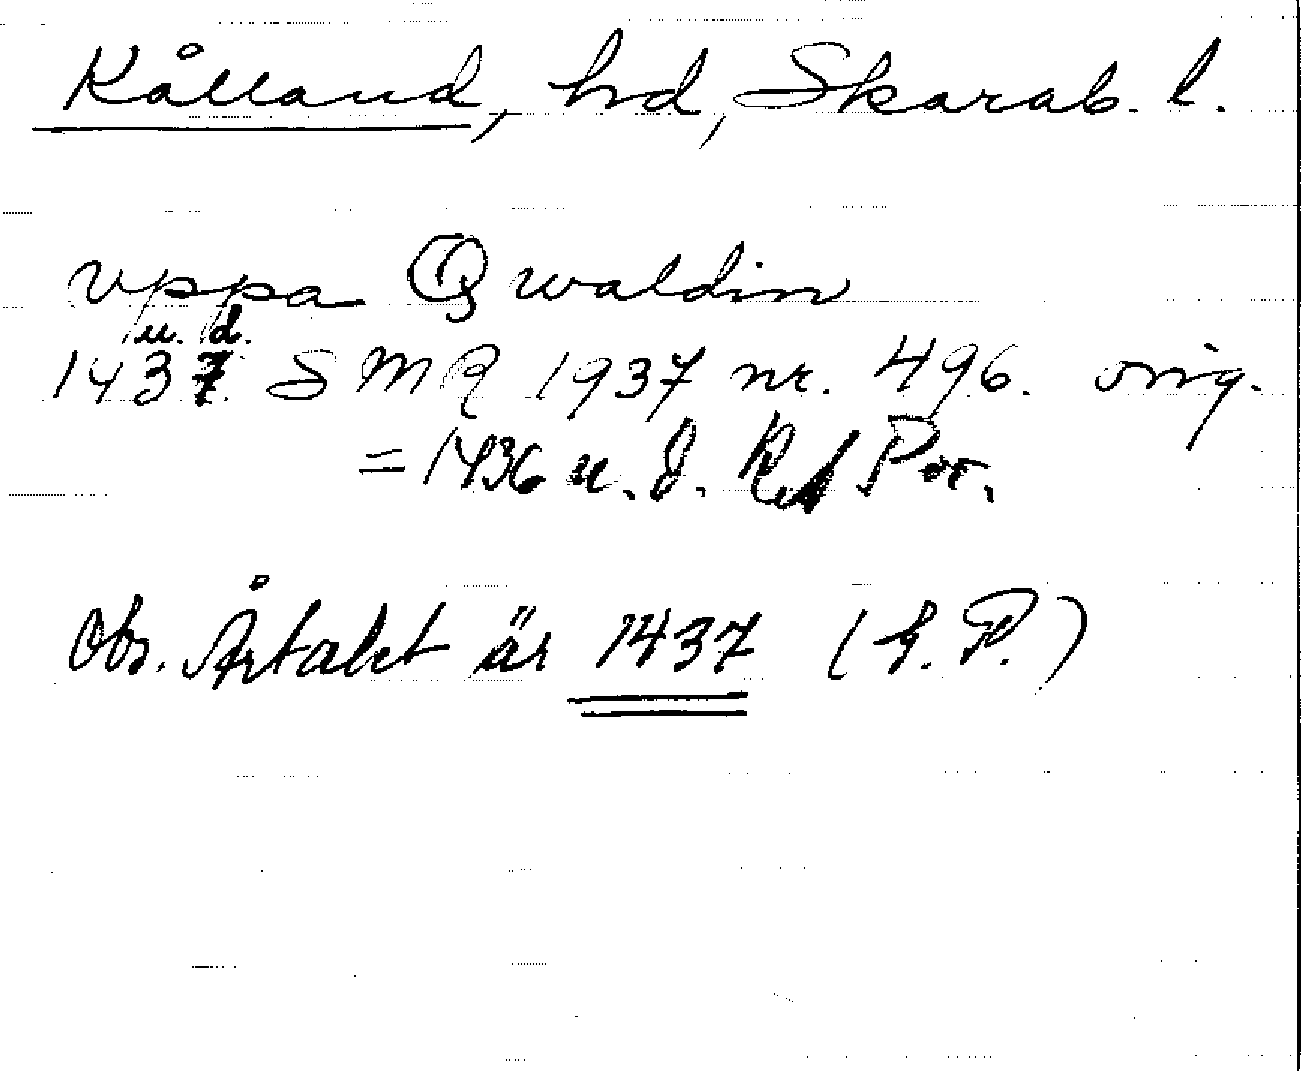 Kålland, hd, Skarab. l.
uppa Qwaldin
u. d.
1437 SMR 1937 nr. 496. orig.
= 1436 u. d. RA Per.
Obs. Årtalet är 1437 (G. P.)